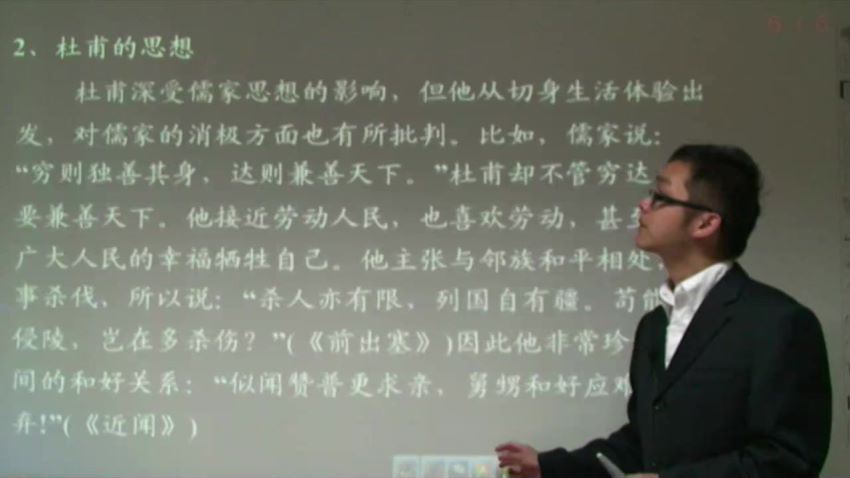 2、杜甫的思想
杜甫深受儒家思想的影响，但他从切身生活体验出
发，对儒家的消极方面也有所批判。比如，儒家说：
“穷则独善其身，达则兼善天下。”杜甫却不管穷达
要兼善天下。他接近劳动人民，也喜欢劳动，甚
广大人民的幸福牺牲自己。他主张与邻族和平相处，
事杀伐，所以说：“杀人亦有限，列国自有疆。苟能
侵陵，岂在多杀伤？”(《前出塞》)因此他非常珍
间的和好关系：“似闻赞普更求亲，舅甥和好应难
弃!”(《近闻》)